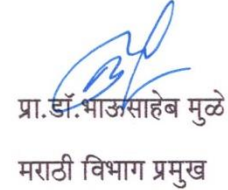 प्रा.डॉ.भाऊसाहेब मुळे
मराठी विभाग प्रमुख